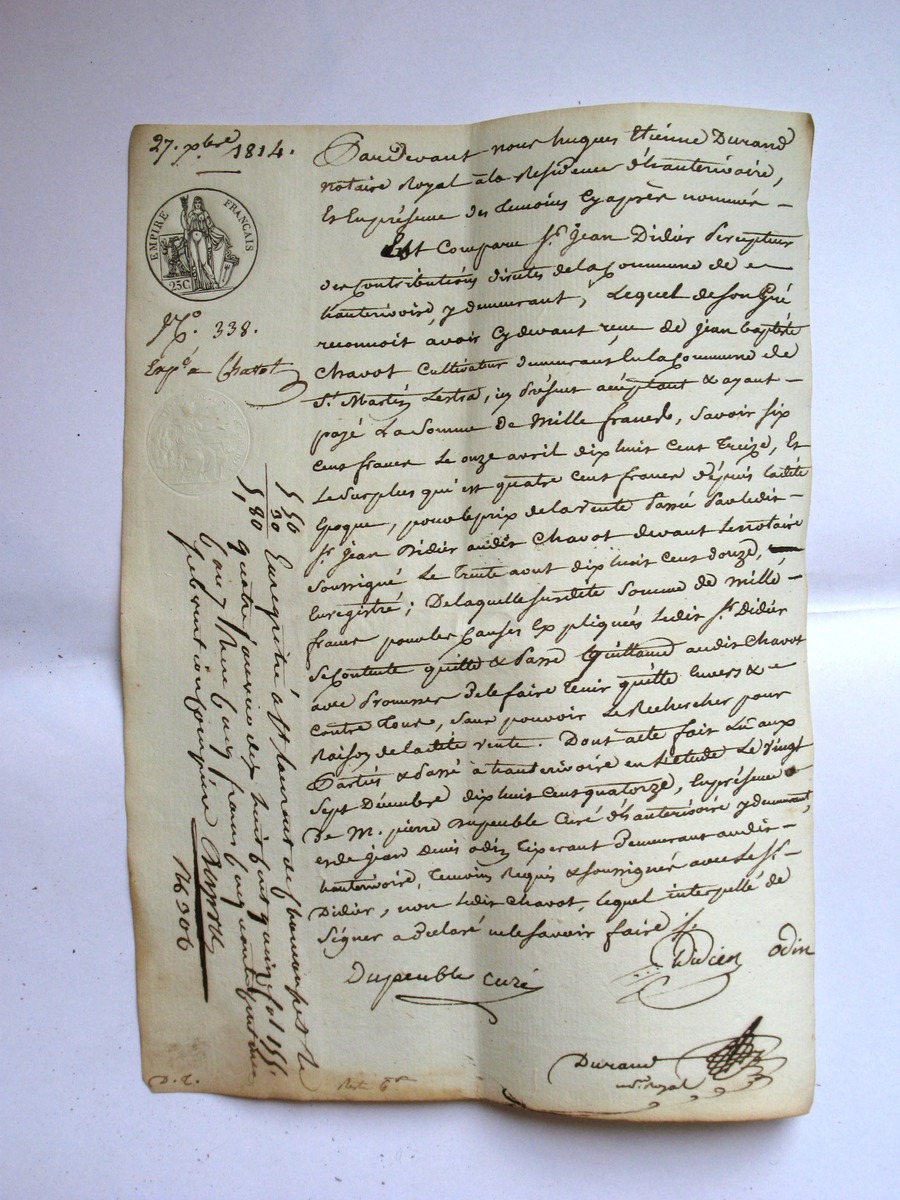 27. xbre 1814.
EMPIRE FRANÇAIS
25C
No. 338.
Expé a Chavot
Pardevant nous hugues Etienne Durand
notaire Royal à la Residence d'hauterivoire,
Et En présence des temoins Cy après nommés
Est Comparu Sr. Jean Didier Percepteur
des Contributions directes de la Commune de
hauterivoire, y demeurant, Lequel de Son Gré
reconnoit avoir Cy devant reçu de jean baptiste
Chavot Cultivateur demeurant En la Commune de
St. Martin Lestra, icy présent acceptant & ayant
payé La Somme de Mille francs, Savoir Six
Cent francs Le onze avril dix huit Cent Treize, Et
Le Surplus qui est quatre Cent francs depuis ladite
Epoque, pour le prix de la vente Passé Par ledit
Sr. Jean Didier audit Chavot devant Le notaire
Soussigné Le trente aout dix huit Cent douze,
Enregistré; De laquelle Susdite Somme de mille
francs pour les Causes Expliquées Ledit Sr. Didier
Se Contente quitte & Passe Quittance audit Chavot
avec Promesse de le faire Tenir quitte Envers &
Contre Tous, Sans pouvoir Le Rechercher pour
Raison de la dite vente. Dont acte fait Lu aux
Parties & Passé à hauterivoire en L'étude Le Vingt
Sept Décembre dix huit Cent quatorze, En présence
de M. pierre Dupeuble Curé d'hauterivoire y demeurant,
et de Jean Denis odin demeurant audit
hauterivoire, Temoins Requis & Soussignés avec Le Sr.
Didier, non Ledit Chavot, Lequel interpellé de
Signer a Déclaré ne le Savoir faire
Didier odin
Dupeuble curé
Durand
nre. royal
5 50
50
5, 80
Enregistré à St Laurent de Chamousset le
quatre janvier dix huit cent quinze
cinq francs cinquante
D. T.